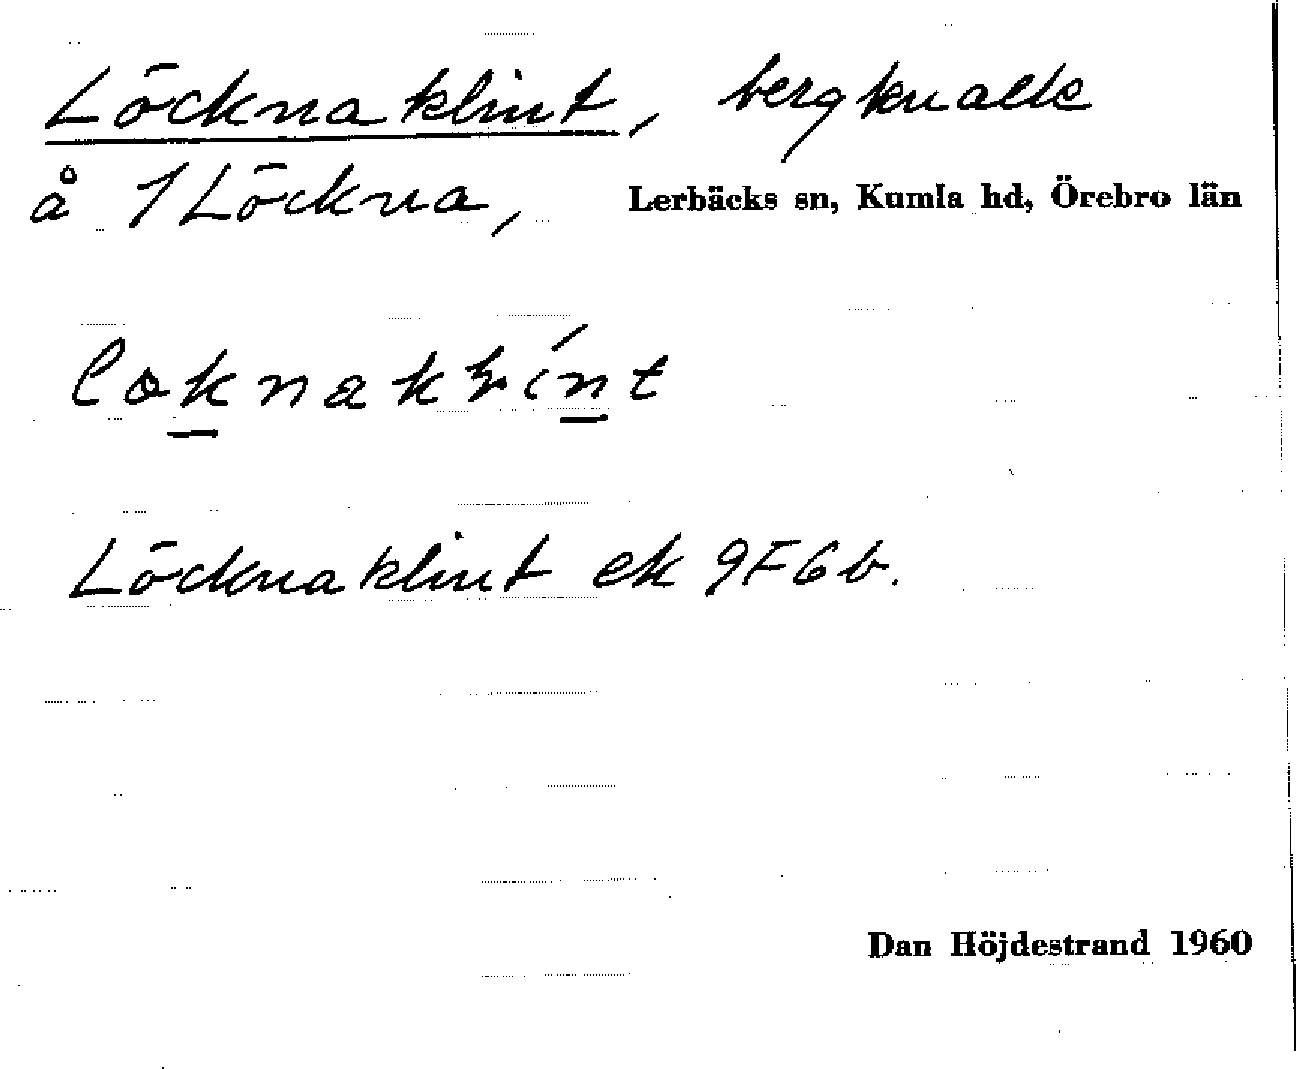 Löcknaklint, bergknalle
å 1 Löckna, Lerbäcks sn, Kumla hd, Örebro län
Löcknaklint ek 9F6b.
Dan Höjdestrand 1960